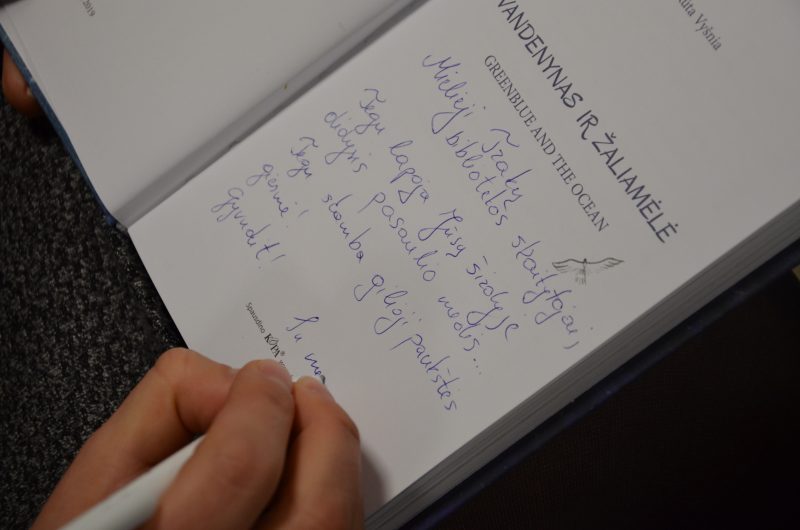 2019
ūta Vyšnia
VANDENYNAS IR ŽALIAMĖLĖ
GREENBLUE AND THE OCEAN
Mielieji Trakų
bibliotekos skaitytojai,
Tegu lapoja Jūsų širdyje
didysis pasaulio medis...
Tegu skamba gilioji paukštės
giesmė!
Gyvuokit!
Su
Spausdino KOPA®